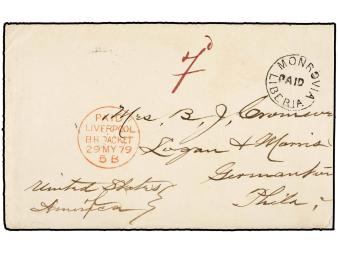 7d
MONROVIA
PAID
LIBERIA
PAID
LIVERPOOL
BR PACKET
29 MY 79
5 B
Mrs. B. J. Cromson
Logan & Morris
Germantown
Phila;
United States
America